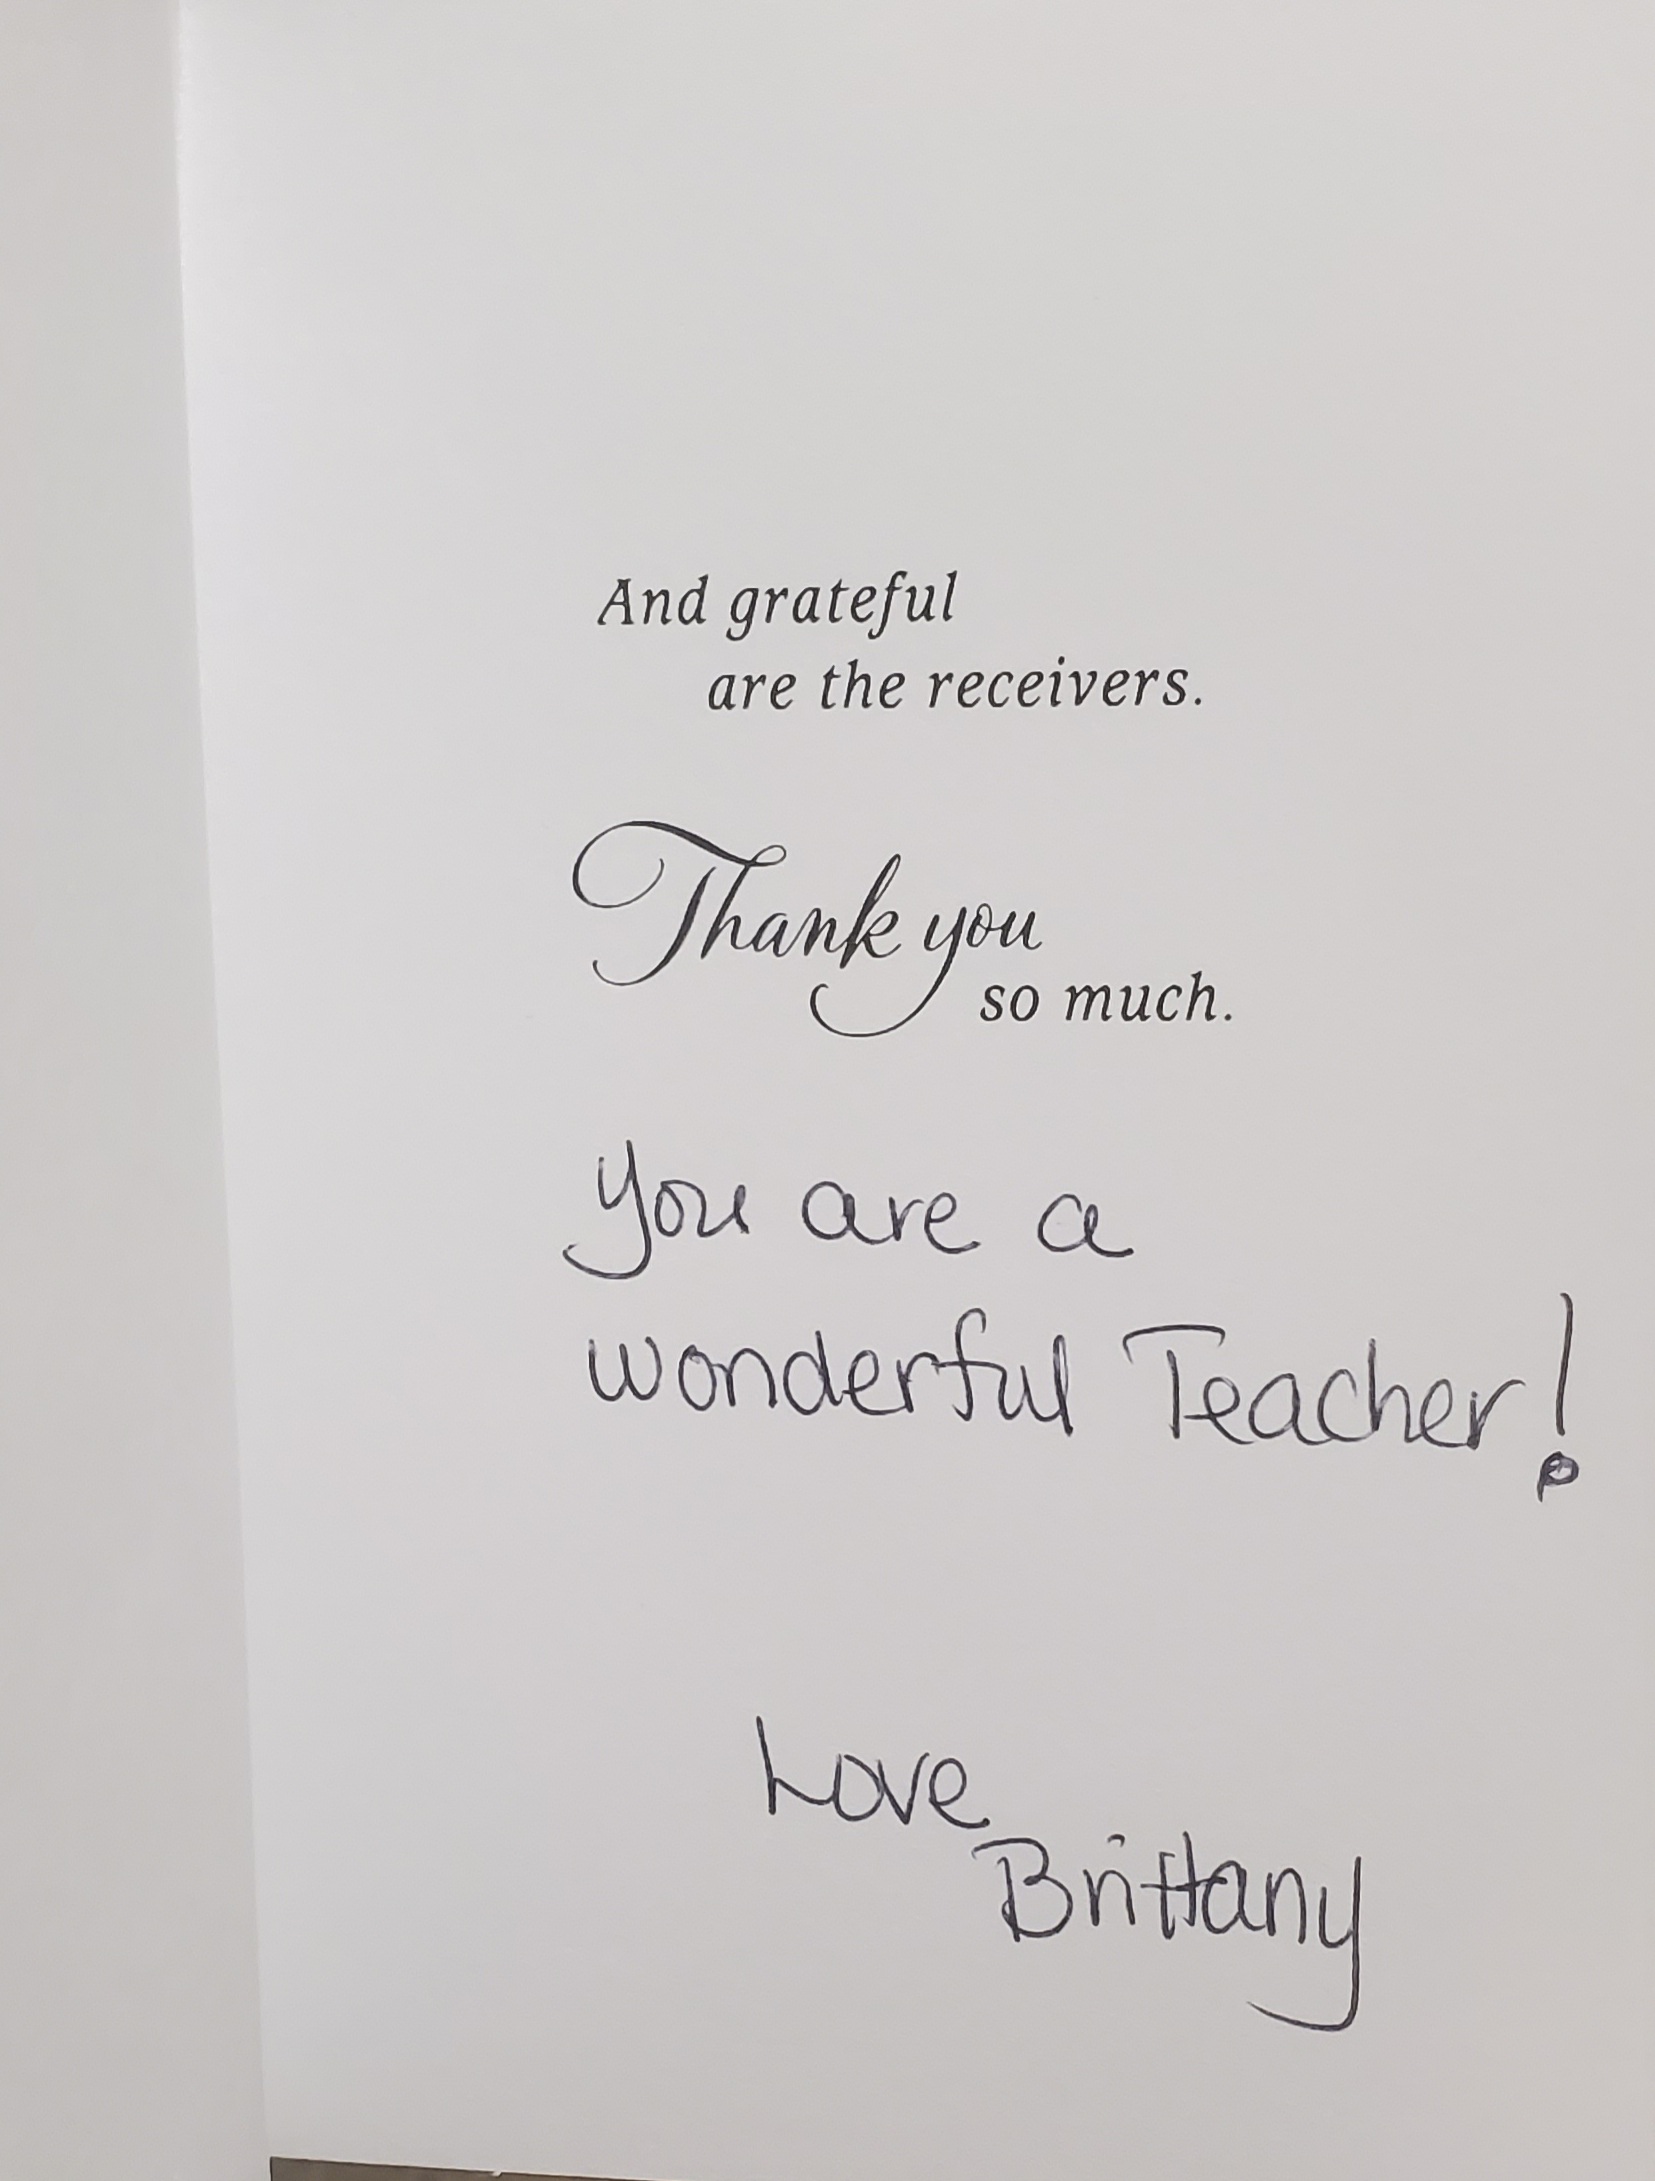 And grateful
are the receivers.
Thank you
so much.
You are a
wonderful Teacher!
Love
Brittany